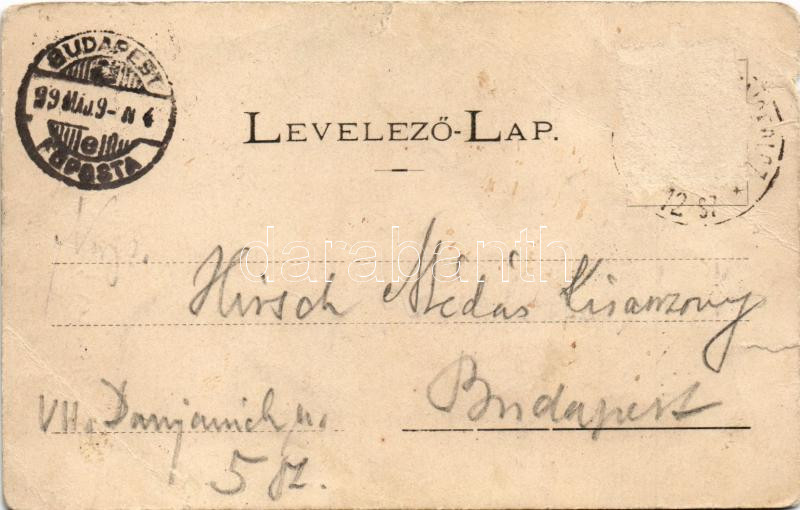 BUDAPEST
99 MÁJ. 9 - N 4
e
FŐPOSTA
LEVELEZŐ-LAP.
12 S7
Hirsch Médás Kisasszony
Budapest
VII. Damjanich u.
5 sz.
darabanth